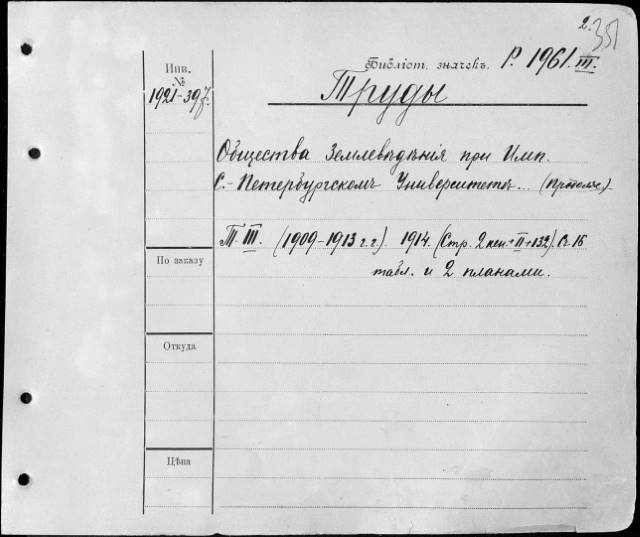 2. 351
Библіот. значекъ. Р. 1961.III.
Инв.
№
1921-397.
Труды
Общества Землевѣдѣнія при Имп.
С.-Петербургскомъ Университетѣ...
Т. III. (1909-1913 г.г.) 1914. (Стр. 2 нен.+II+132). Съ 16
табл. и 2 планами.
По заказу
Откуда
Цѣна